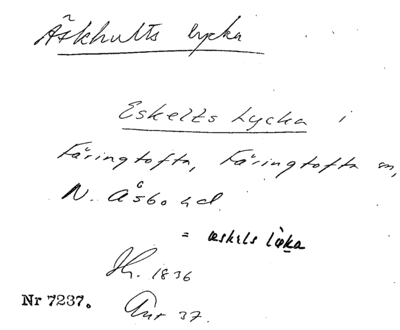 Äskhults lycka
Eskelts Lycka i
Färingtofta, Färingtofta sn,
N. Åsbo hd.
= æskels
Jh. 1836
Nr 7237.
37.